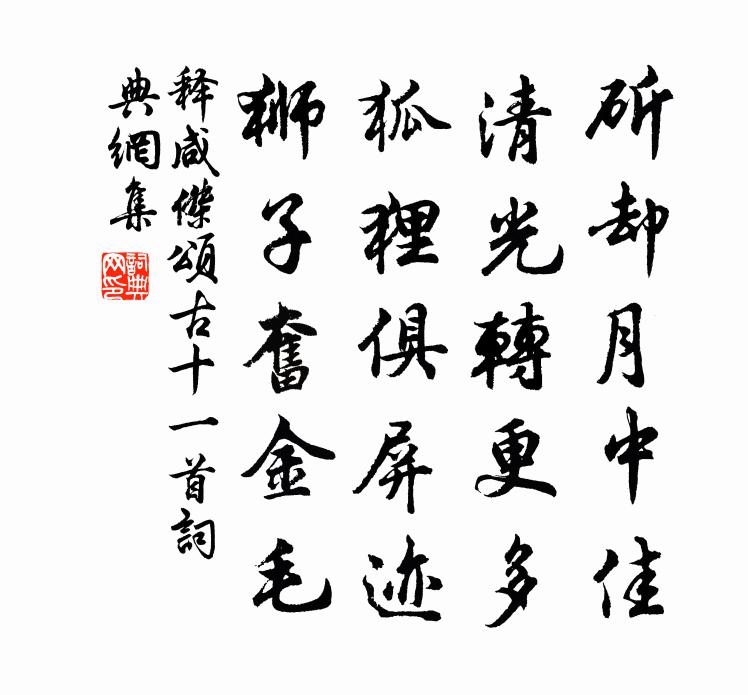 斫却月中佳
清光轉更多
狐狸俱屏迹
獅子奮金毛
释咸傑頌古十一首詞
典網集
詞典
网印